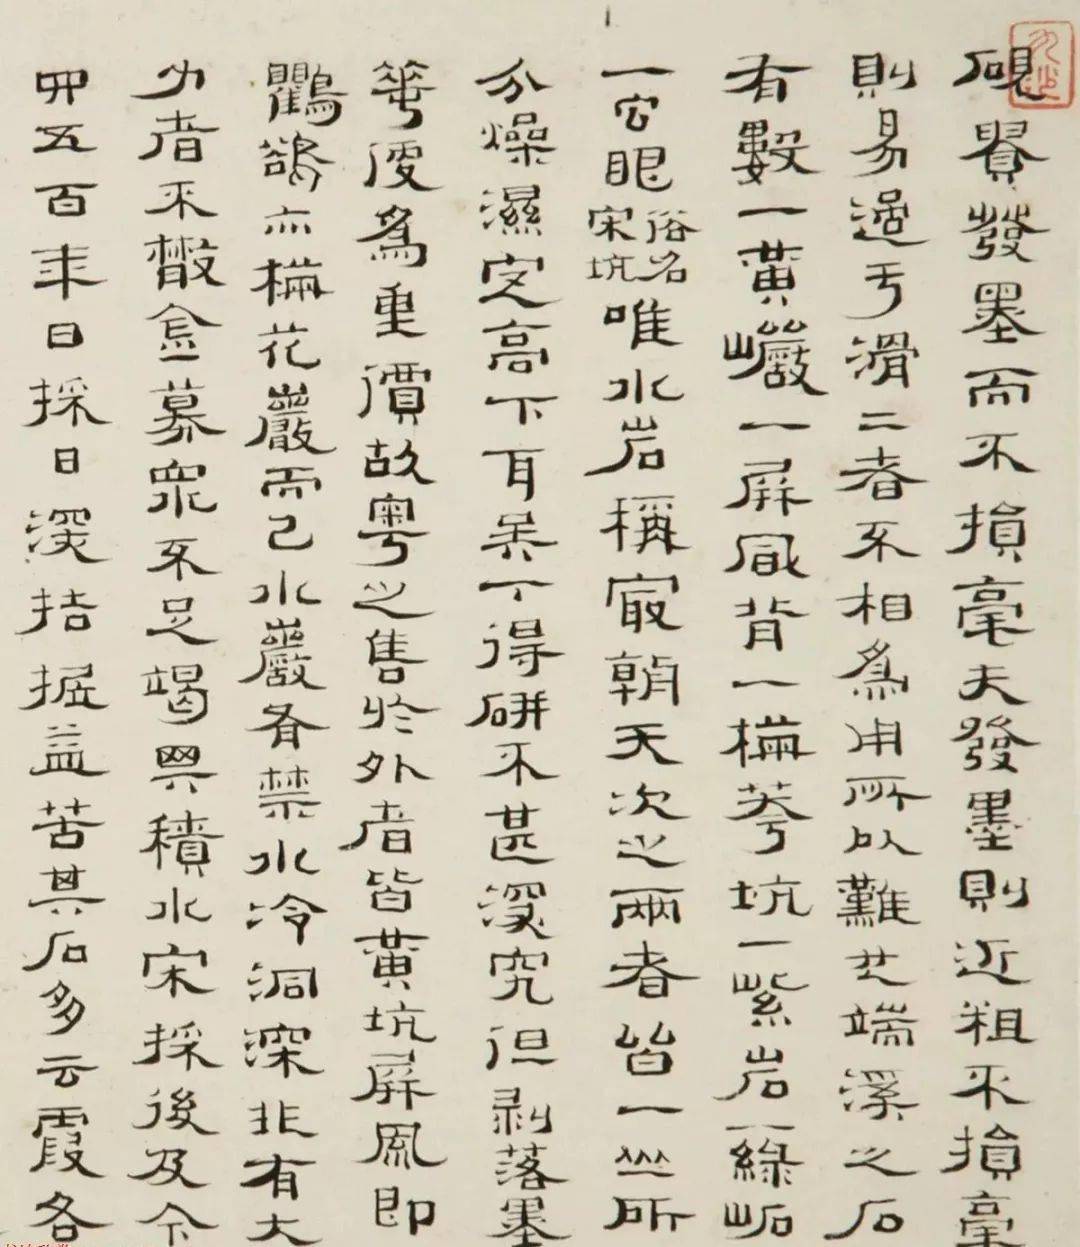 硯貴發墨而不損毫夫發墨則近粗不損毫
則易過于滑二者不相爲用所以難也端溪之石
有數一黃巖一屏風背一楳萼坑一紫岩一綠
一眼俗名宋坑唯水岩稱冣朝天次之兩者皆一所
分燥濕定高下耳吳下得研不甚深究但剥落墨
華處爲重價故粤之售於外者皆黃坑屏風即
鸜鵒亦楳花巖而已水巖有禁水冷洞深非有大
力者不敢募衆不足竭其積水宋採後及今
四五百年日採日深掘益苦其石多云霞各